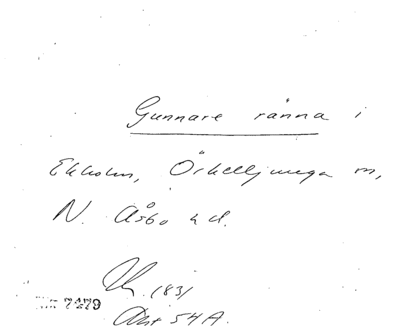 Gunnare ränna i
Ekholm, Örkelljunga sn,
N. Åsbo hd.
1831
7479
Akt 54A.